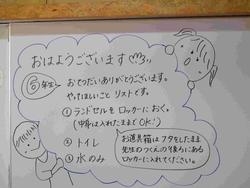 おはようございます
⑥年生 おてつだいありがとうございます。
やってほしいこと リストです。
① ランドセルを ロッカーに おく。
(中身は入れたままで OK!)
② トイレ
③ 水のみ
お道具箱は フタをしたまま
先生の つくえの 後ろにある
ロッカーに入れてください。